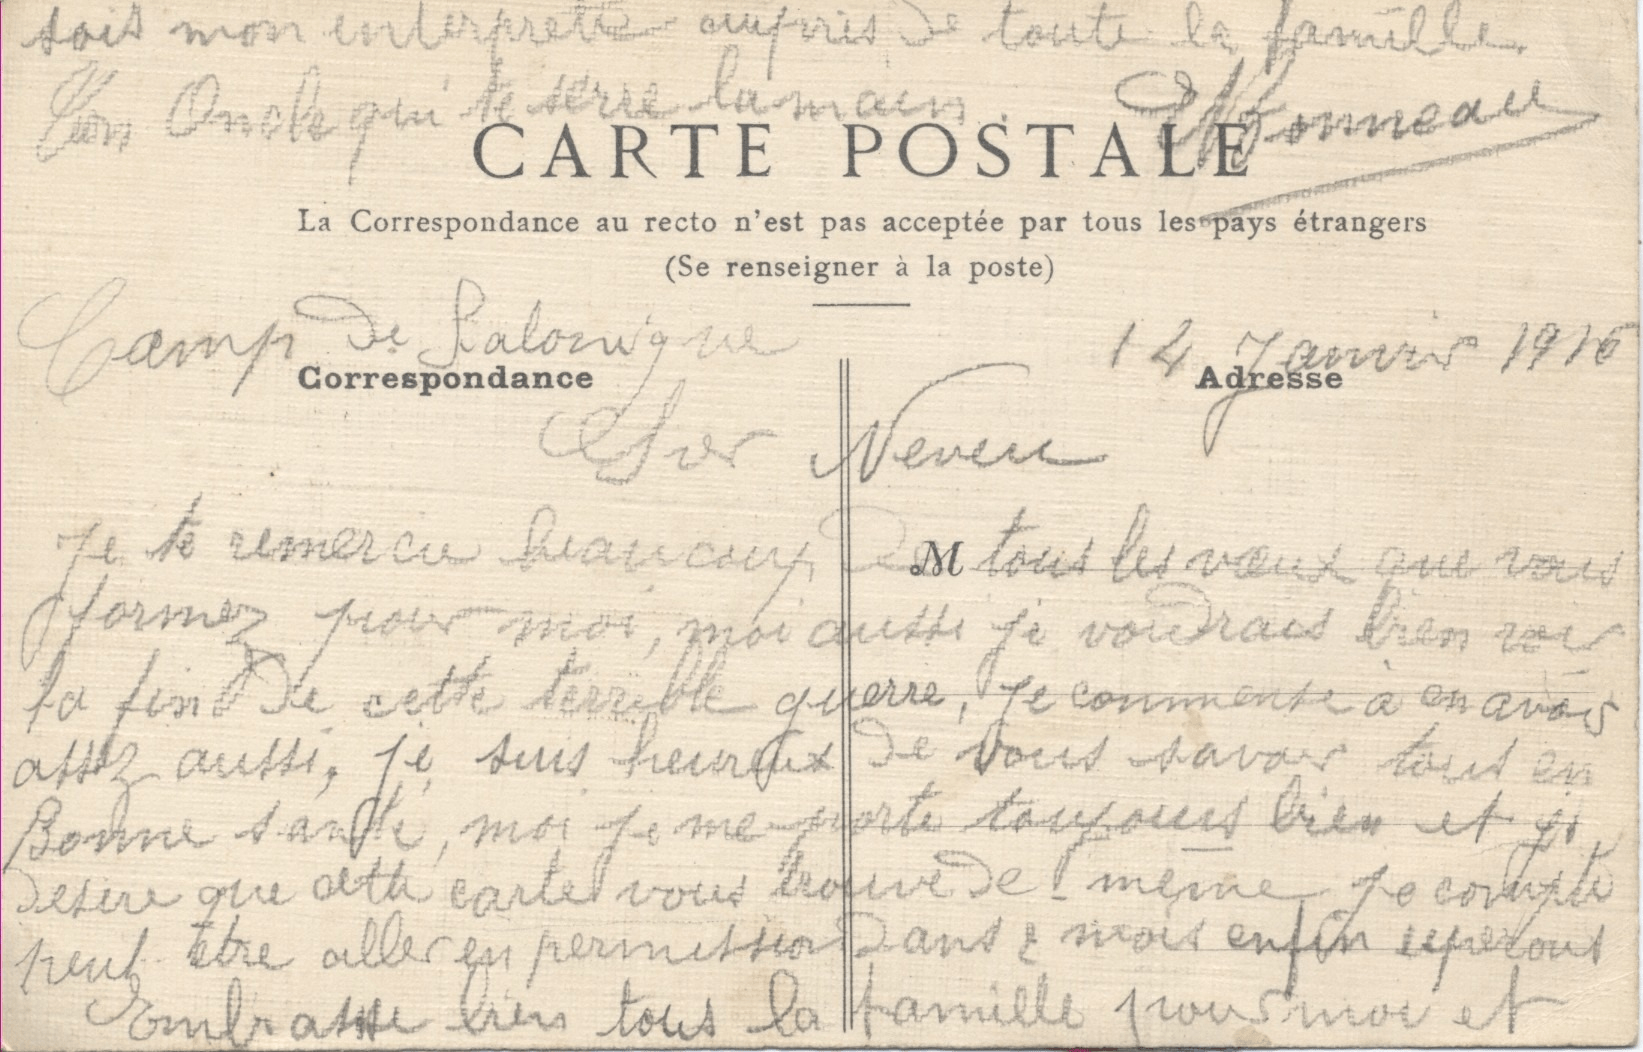 sois mon interprette auprès de toute la famille.
Ton Oncle qui te serre la main
CARTE POSTALE
La Correspondance au recto n'est pas acceptée par tous les pays étrangers
(Se renseigner à la poste)
Camp de Salonique 14 Janvier 1916
Correspondance Adresse
Cher Neveu
Je te remercie beaucoup de M tous les vœux que vous
formez pour moi, moi aussi je voudrais bien voir
la fin de cette terrible guerre, je commence à en avoir
assez aussi, je suis heureux de vous savoir tous en
Bonne santé, moi je me porte toujours bien et je
desire que cette carte vous trouve de même je compte
peut être aller en permission dans 2 mois enfin esperons
Embrasse bien tous la famille pour moi et